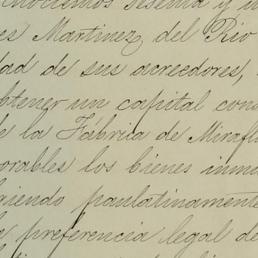 ochocientos sesenta y u
es Martinez del Rio
dad de sus acreedores,
btener un capital cons
e la Fábrica de Mirafl
orables los bienes inmu
iendo paulatinamente
preferencia legal de